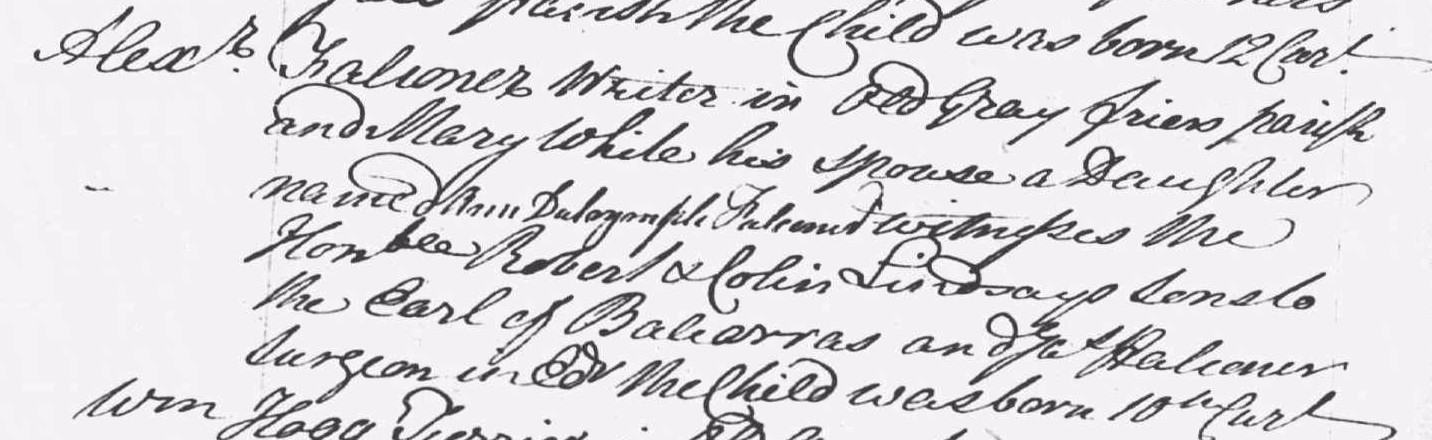 parish the Child was born 12 Curt.
Alexr. Falconer Writer in Old Gray friers parish
and Mary White his spouse a Daughter
named Ann Dalrymple Falconer witnesses the
Honble Robert & Colin Lindsays sons to
the Earl of Balcarras and Jas Halconer
Surgeon in Edr the Child was born 10th Curt
Wm Hogg in